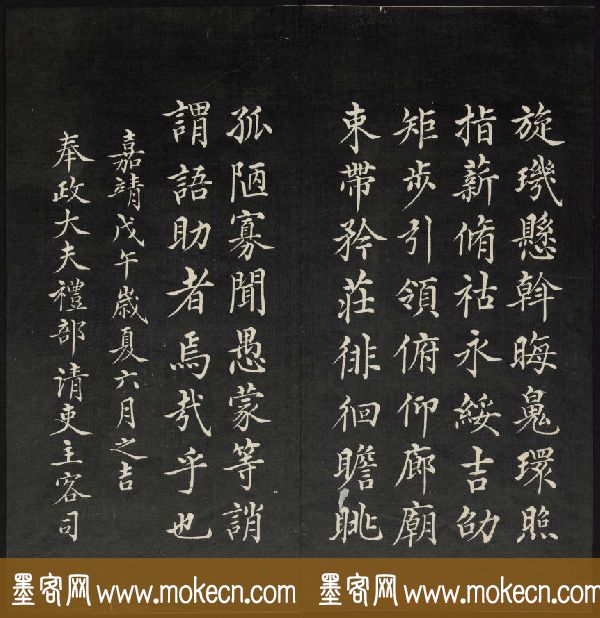 旋璣懸斡晦魄環照
指薪脩祜永綏吉劭
矩步引領俯仰廊廟
束帶矜莊徘徊瞻眺
孤陋寡聞愚蒙等誚
謂語助者焉哉乎也
嘉靖戊午歲夏六月之吉
奉政大夫禮部請吏主客司
墨客网 www.mokecn.com 墨客网 www.mokecn.com